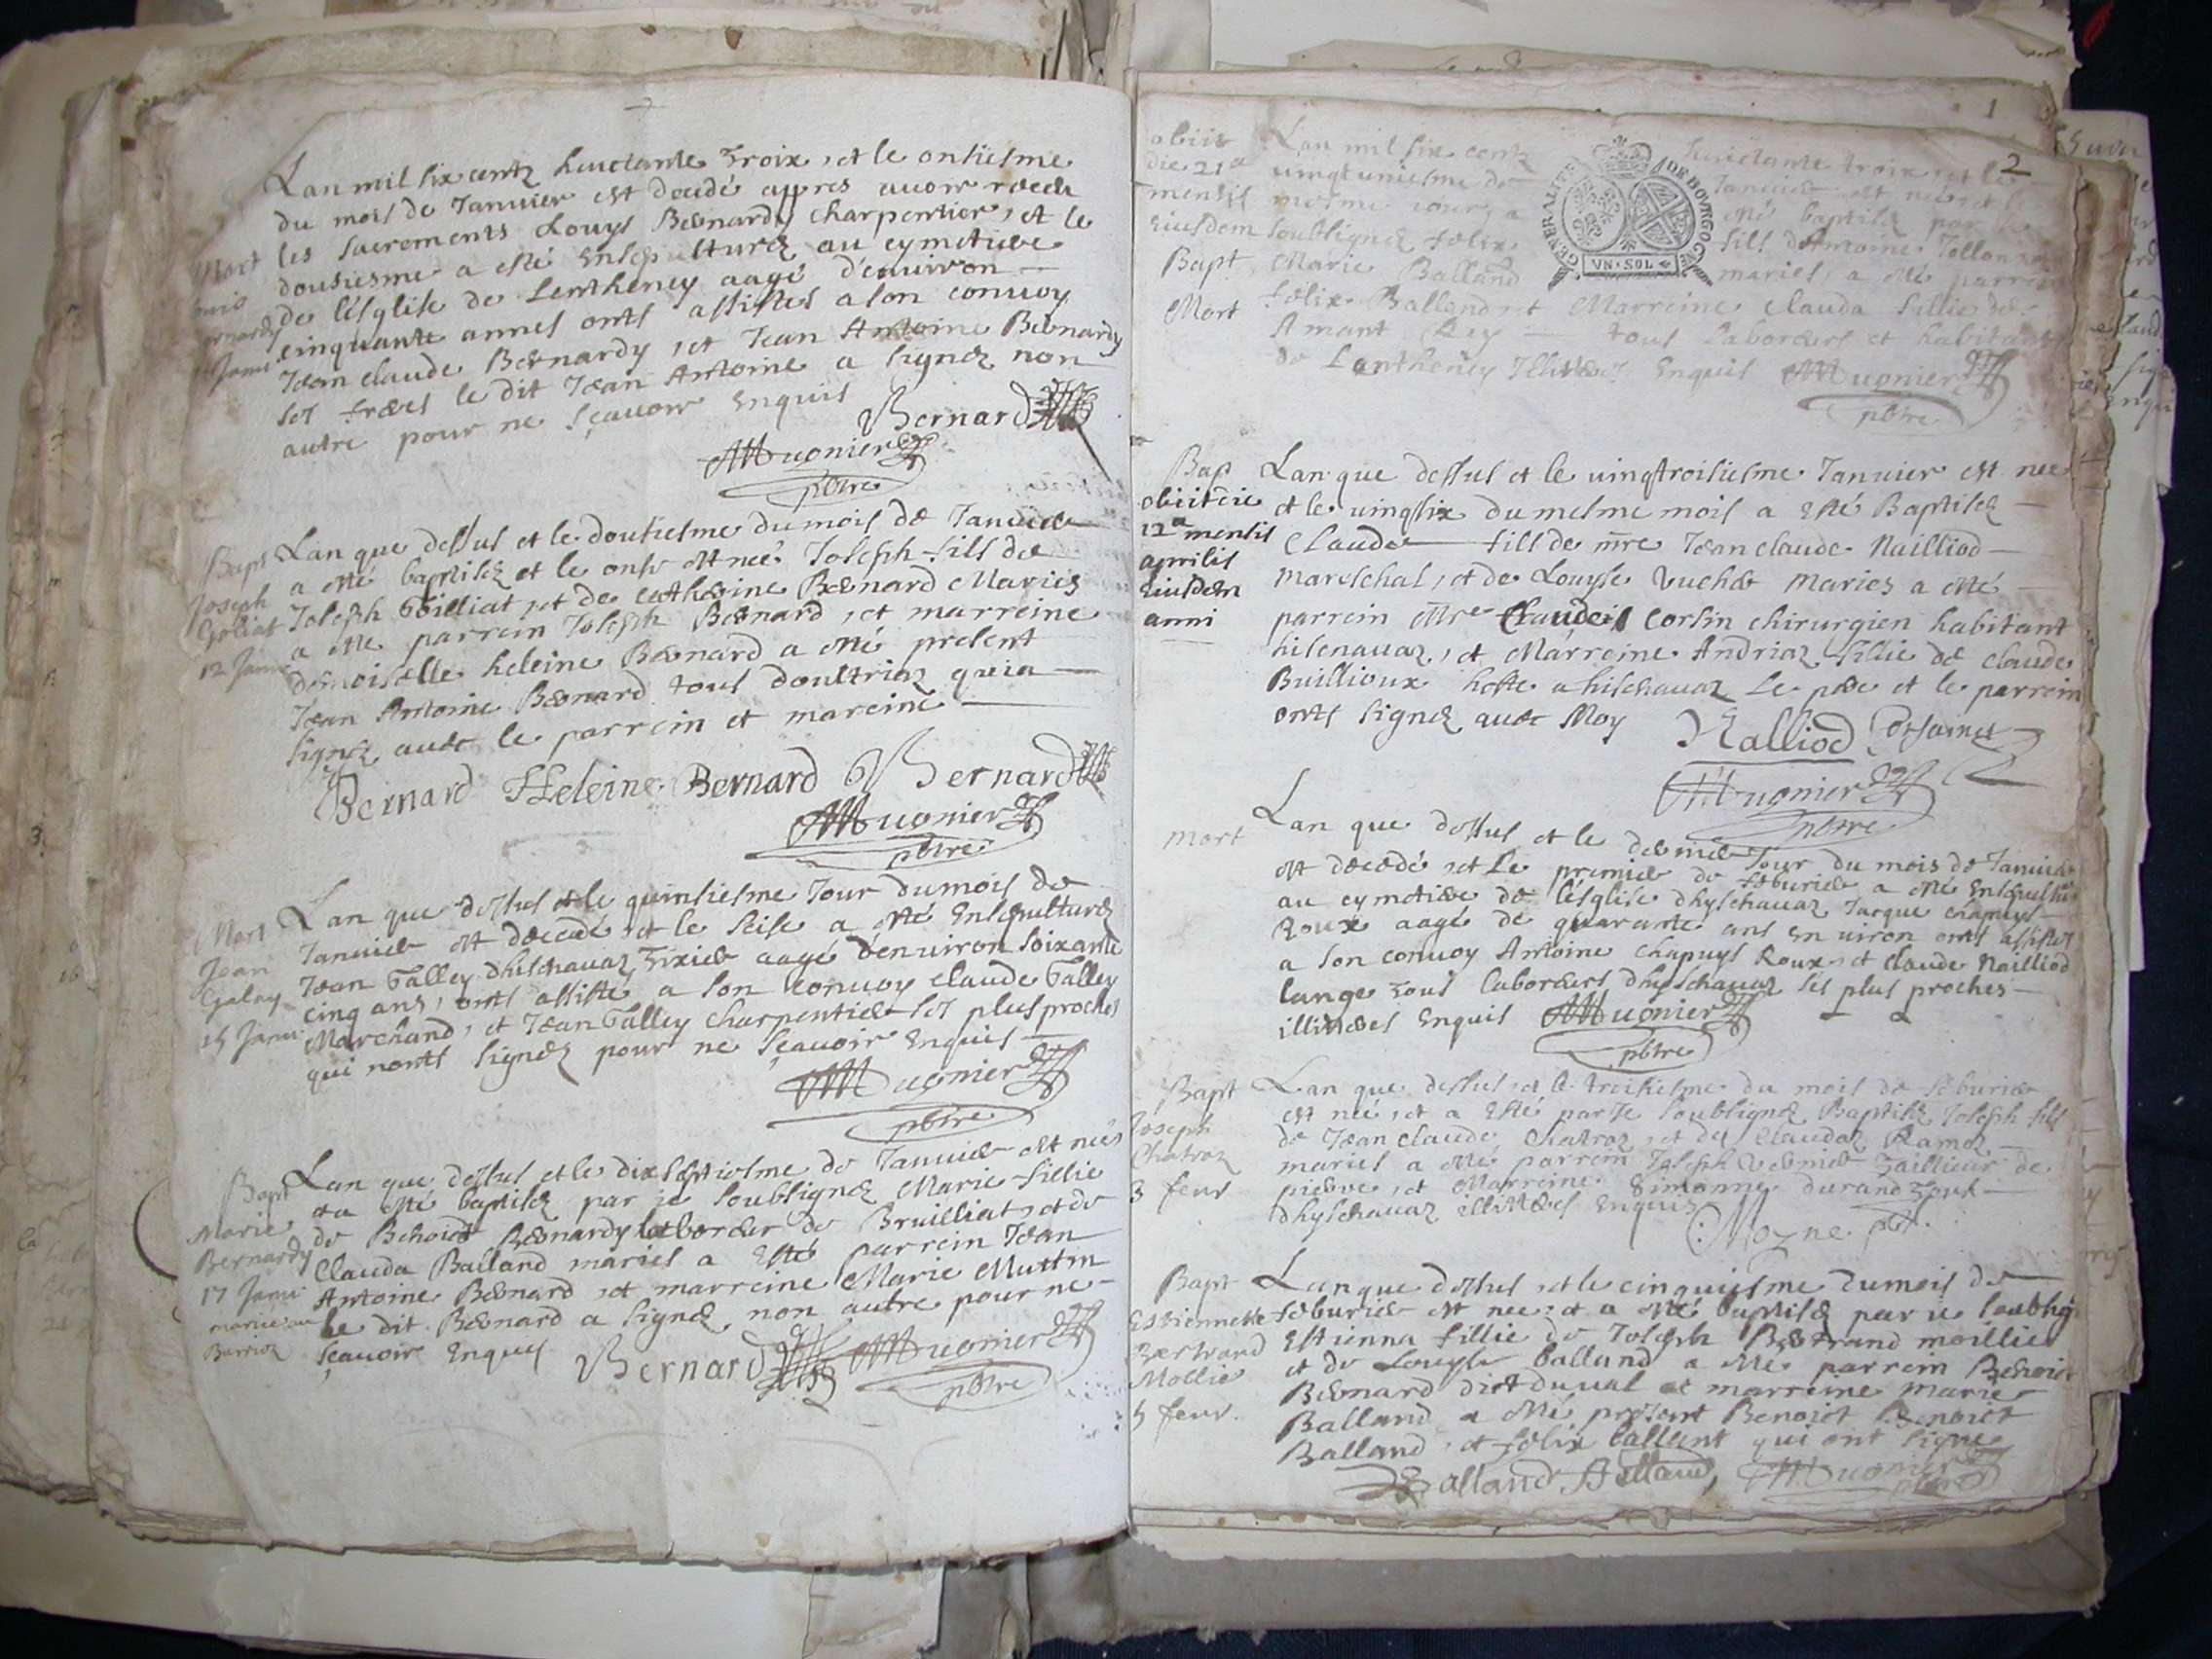 Lan mil six centz huictante troix, et le onsiesme
du mois de Januier est decedé appres auoir receu
les sacrements Louys Bernardy charpentier, et le
dousiesme a esté Ensepulturez au cymetiere
de lésglise de Lentheney aagé d'enuiron
cinquante annes onts assistes a son conuoy
Jean claude Bernardy, et Jean Antoine Bernardy
ses freres le dit Jean Antoine a signez non
autre pour ne sçauoir Enquis
Bernard
Mugnier
pbtre
Mort
Lan que dessus et le dousiesme du mois de Januier
a esté baptisez et le onse est neé Joseph fils de
Joseph Goilliat, et de catherine Bernard Mariés
a este parrein Joseph Bernard, et marreine
demoiselle heleine Bernard a esté present
Jean Antoine Bernard tous doultriaz qui a
signez auec le parrein et mareine
Bernard Heleine Bernard Bernard
Mugnier
pbtre
Bapt
Joseph
Goliat
12 Janu
Lan que dessus et le quinsiesme Jour du mois de
Januier est decedé, et le seise a esté Ensepulturez
Jean Galley dhischauaz Tixier aagé denuiron soixante
cinq ans, onts assisté a son conuoy claude Galley
Marchand, et Jean Galley charpentier ses plus proches
qui nonts signez pour ne sçauoir Enquis
Mugnier
pbtre
Mort
Jean
Galay
15 Janu
Lan que dessus et le dix septiesme de Januier est neé
et a esté baptisez par je soubsignez Marie fillie
de Benoict Bernardy laboreur de Bruilliat, et de
Clauda Balland mariés a Esté parrein Jean
Antoine Bernard, et marreine Marie Muttin
le dit Bernard a signez, non autre pour ne
sçauoir Enquis
Bernard Mugnier
pbtre
Bapt
Marie
Bernardy
17 Janu
mariée au
Barrioz
2
obiit
die 21a
mensis
eiusdem
Bapt
Mort
GENERALITE DE BOVRGOGNE
VN·SOL
Lan mil six centz huictante troix, et le
uingtuniesme de Januier est né, et le
mesme iour, a esté baptisez par
soubsignez felix fils dAntoine Tollon
Marie Balland mariés, a esté parrein
felix Balland, et Marreine Clauda fillie de
Amant tous Laboreurs et habitants
de Lentheney Illiteres Enquis Mugnier
pbtre
Bap
obiit die
12a mensis
aprilis
eiusdem
anni
Lan que dessus et le uingtroisiesme Januier est nee
et le uingtsix du mesme mois a Esté Baptisez
Claude fils de mre Jean claude Nailliod
mareschal, et de Louyse Vuchet mariés a esté
parrein Mre Claude Corsin chirurgien habitant
hisenauaz, et Marreine Andriaz fillie de claude
Buillioux hoste a hischauaz Le pere et le parrein
onts signez auec Moy Nalliod
Mugnier
pbtre
mort
Lan que dessus et le dernier Jour du mois de Januier
est decedé, et Le premier de feburier a esté Ensepulturé
au cymetiere de lésglise dhyschauaz Jacque chapuys
Roux aagé de quarante ans enuiron onts assistes
a son conuoy Antoine chapuys Roux, et claude Nailliod
lange tous laboreurs dhyschauaz ses plus proches
illiteres Enquis Mugnier
pbtre
Bapt
Joseph
Chatraz
3 feur
Lan que dessus, et le troisiesme du mois de feburier
est né, et a Esté par Je soubsignez Baptisez Joseph fils
de Jean claude Chatraz, et de Claudaz Ramel
mariés a esté parrein Joseph Vernier Taillieur de
pierre, et Marreine Simonne durand tous
dhyschauaz illiteres Enquis
Moyne pbt.
Bapt
Estiennette
Bertrand
Mollie
5 feur.
Lan que dessus, et le cinquiesme du mois de
feburier est nee, et a esté baptisez par ie soubsig
Estienna fillie de Joseph Bertrand moillier
et de Louyse balland a esté parrein Benoict
Bernard dict duual et marreine Marie
Balland a esté present Benoict Benoict
Balland, et felix ballant qui ont signe
Balland Balland Mugnier
pbtre